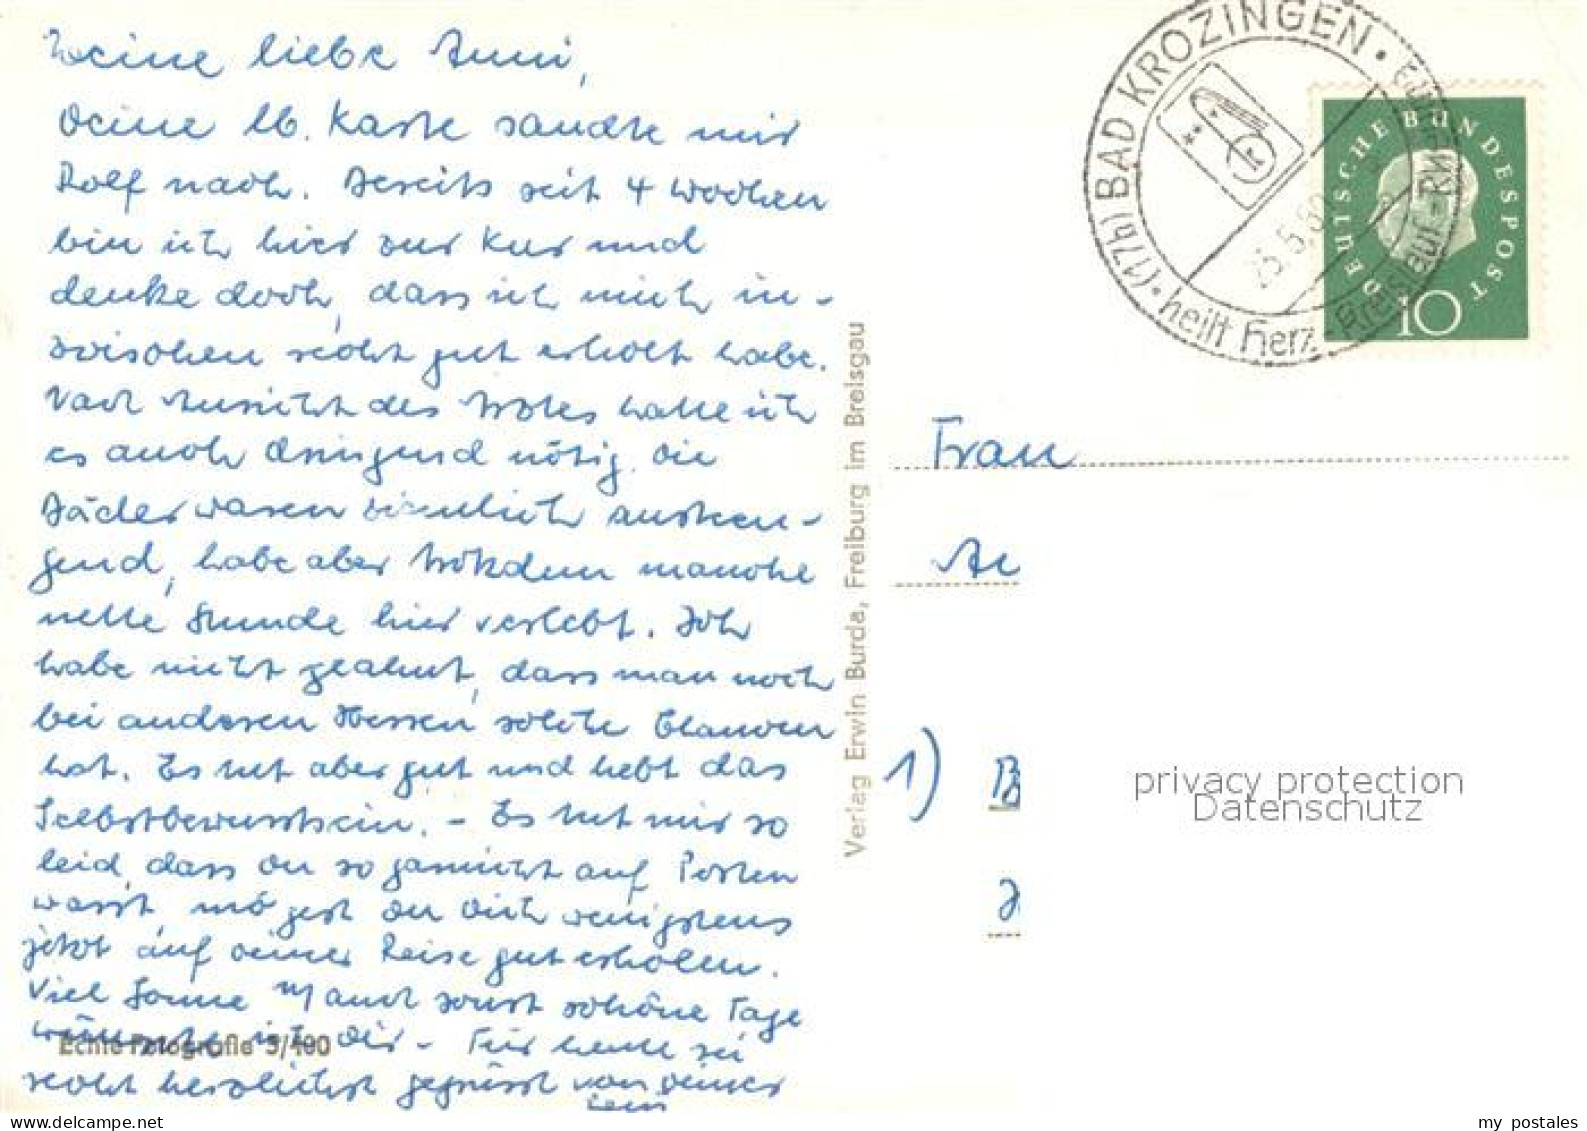 Meine liebe Anni,
Deine lb. Karte sandte mir
Rolf nach. Bereits seit 4 Wochen
bin ich hier zur Kur und
denke doch, dass ich mich in-
zwischen recht gut erholt habe.
Nach Ansicht des Arztes hatte ich
es auch dringend nötig. Die
Bäder waren ziemlich anstren-
gend, habe aber trotzdem manche
nette Stunde hier verlebt. Ich
habe nicht geahnt, dass man noch
bei anderen Herren solche Chancen
hat. Es tut aber gut und hebt das
Selbstbewusstsein. - Es tut mir so
leid, dass du so garnicht auf Posten
warst, mögest du Dich wenigstens
jetzt auf deiner Reise gut erholen.
Viel Sonne u/ auch sonst schöne Tage
wünsche ich dir - Für heute sei
recht herzlichst gegrüsst von Deiner
Echte Fotografie 5/400
Verlag Erwin Burda, Freiburg im Breisgau
(17b) BAD KROZINGEN
heilt Herz - Kreislauf -
DEUTSCHE BUNDESPOST
10
Frau
1)
privacy protection
Datenschutz
my postales